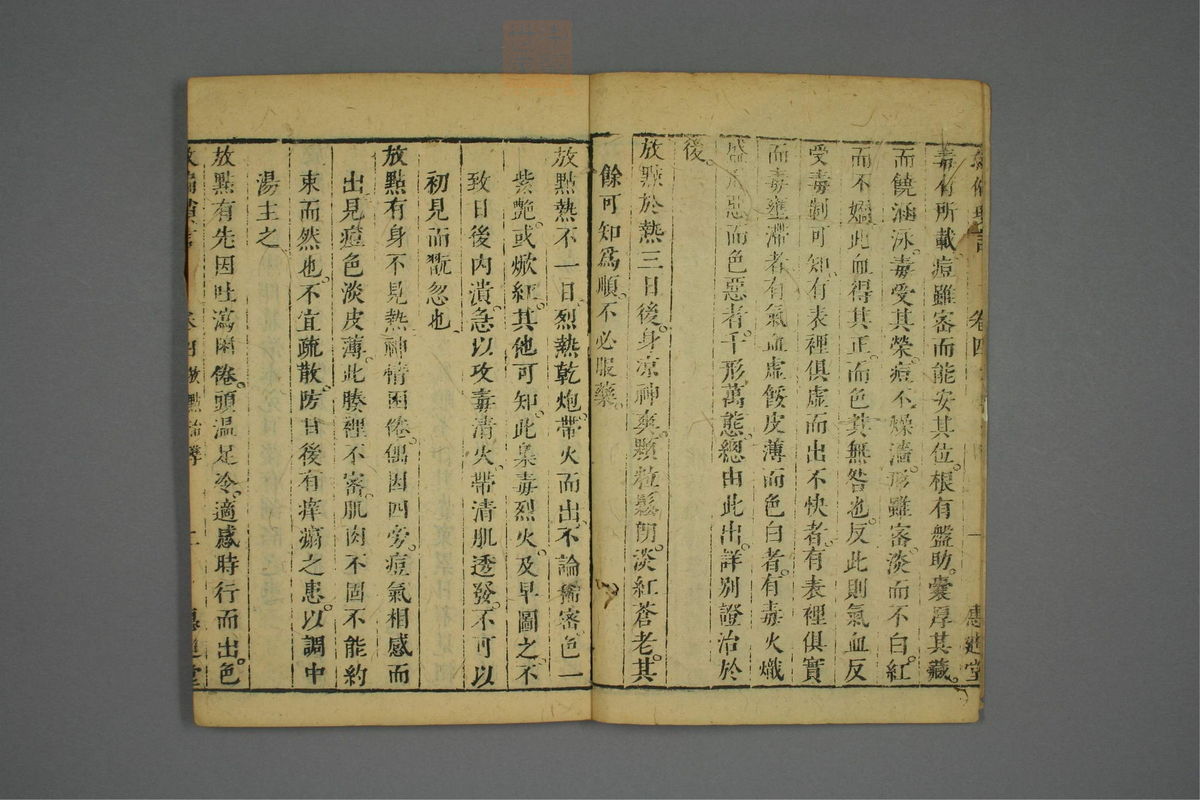 卷四
毒有所載痘雖密而能安其位根有盤助囊厚其藏
而饒涵泳毒受其榮痘不燥濇形雖密淡而不白紅
而不嬌此血得其正而色其無咎也反此則氣血反
受毒制可知有表裡俱虛而出不快者有表裡俱實
而毒壅滯者有氣血虛餒皮薄而色白者有毒火熾
盛形惡而色惡者千形萬態總由此出詳別證治於
後
放點於熱三日後身凉神爽顆粒鬆朗淡紅蒼老其
餘可知爲順不必服藥
放點熱不一日烈熱乾炮帶火而出不論稀密色一
紫艷或焮紅其他可知此梟毒烈火及早圖之不
致日後內潰急以攻毒清火帶清肌透發不可以
初見而翫忽也
放點有身不見熱神情困倦偶因四旁痘氣相感而
出見痘色淡皮薄此腠裡不密肌肉不固不能約
束而然也不宜疏散防甘後有痒瘸之患以調中
湯主之
放點有先因吐瀉困倦頭溫足冷適感時行而出色